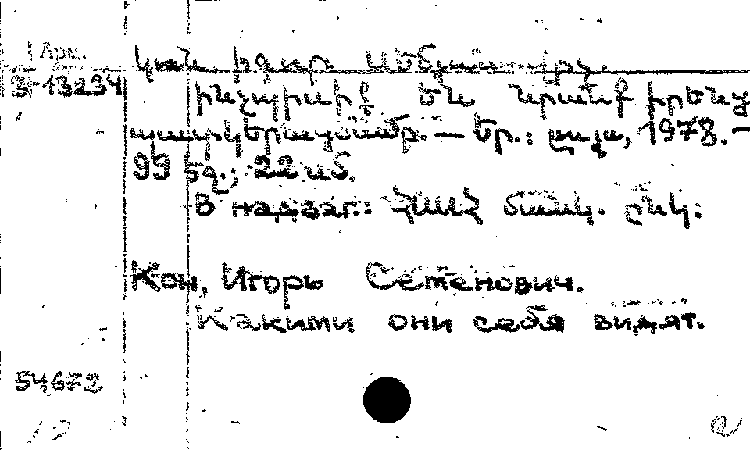 Арм.
3-13234
Կոն Իգոր Սեմյոնովիչ.
Ինչպիսիք են նրանք իրենց
պատկերացմամբ. — Եր.: Լույս, 1978. —
99 էջ.; 22 սմ.
В надзаг.: ՀՍՍՀ մանկ. ընկ.
Кон, Игорь Семенович.
Какими они себя видят.
54672